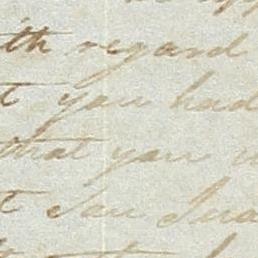 ith regard
t you had
that you
t San Jua